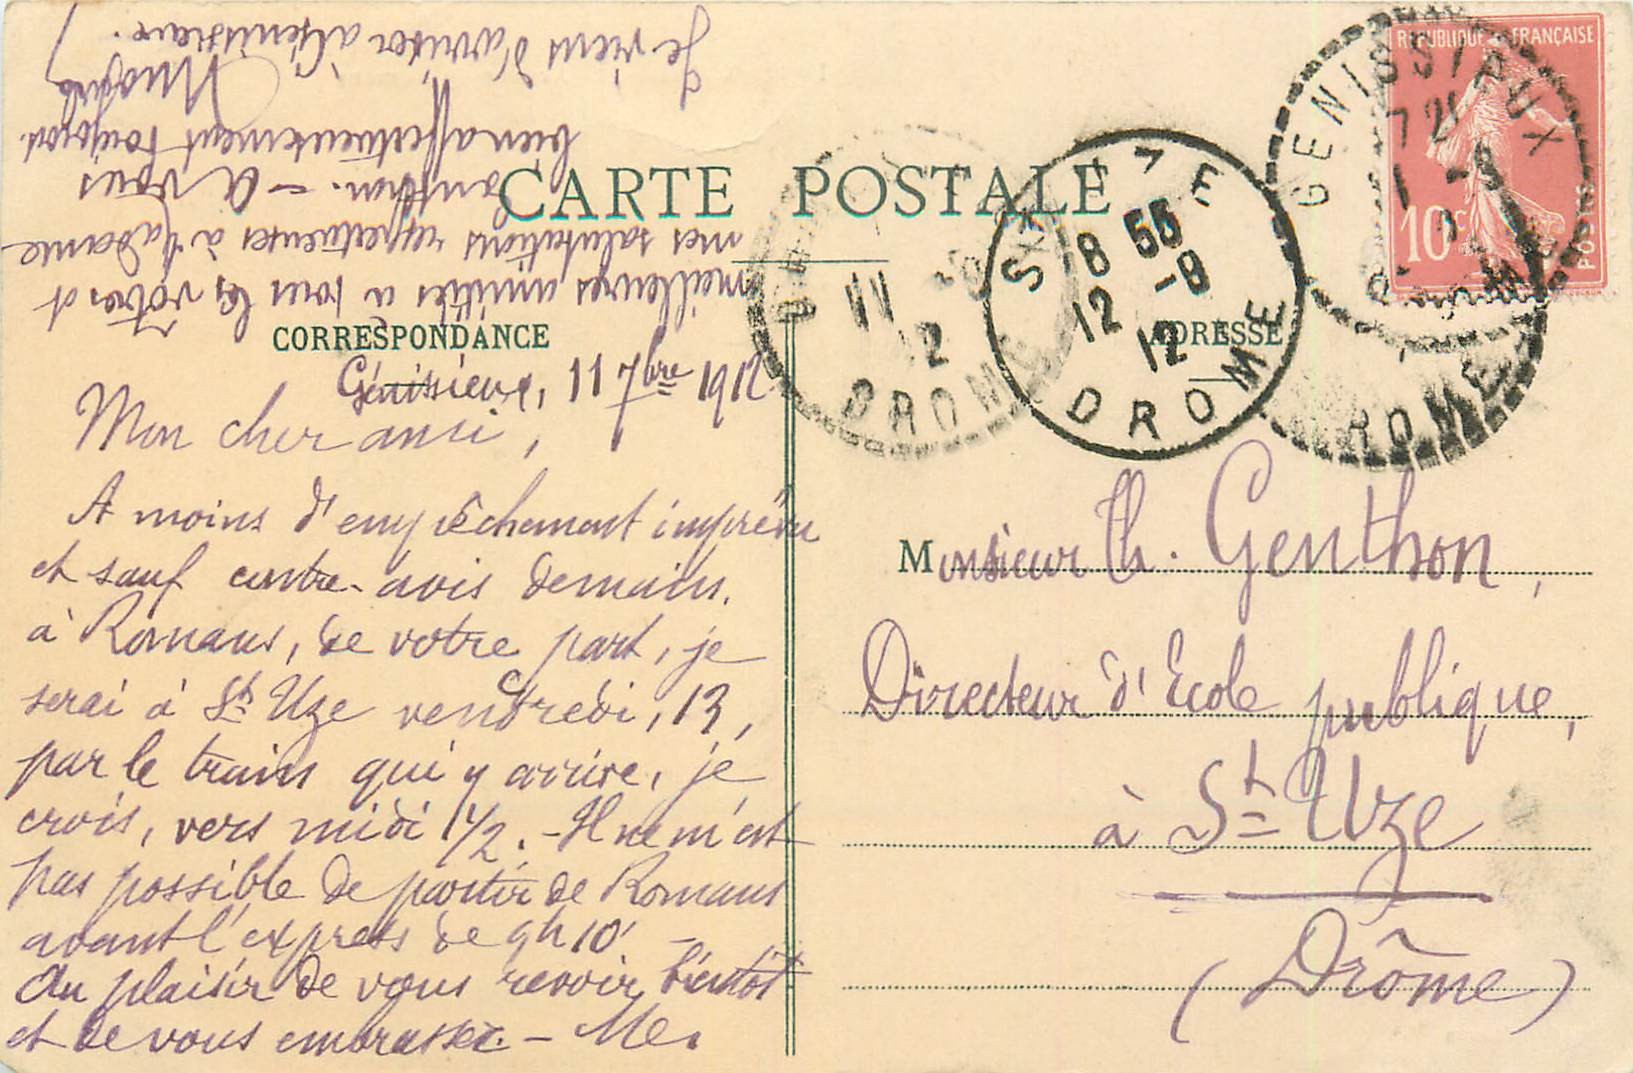 CARTE POSTALE
CORRESPONDANCE
ADRESSE
RÉPUBLIQUE FRANÇAISE
10c
POSTES
GENISSIEUX
7 21
DROME
11
12
DROME
ST UZE
8 55
12 -9
12
DROME
Génissieux, 11 7bre 1912
Mon cher ami,
A moins d'empêchement imprévu
et sauf contre-avis demain,
à Romans, de votre part, je
serai à St Uze vendredi, 13,
par le train qui y arrive, je
crois, vers midi 1/2. - Il ne m'est
pas possible de partir de Romans
avant l'express de 9h10' -
Au plaisir de vous revoir bientôt
et de vous embrasser. - Mes
meilleures amitiés à tous les vôtres et
mes salutations respectueuses à Madame
Genthon. - A vous
bien affectueusement toujours.
Je viens d'arriver à Génissieux.
Monsieur Th. Genthon,
Directeur d'Ecole publique,
à St Uze
(Drôme)